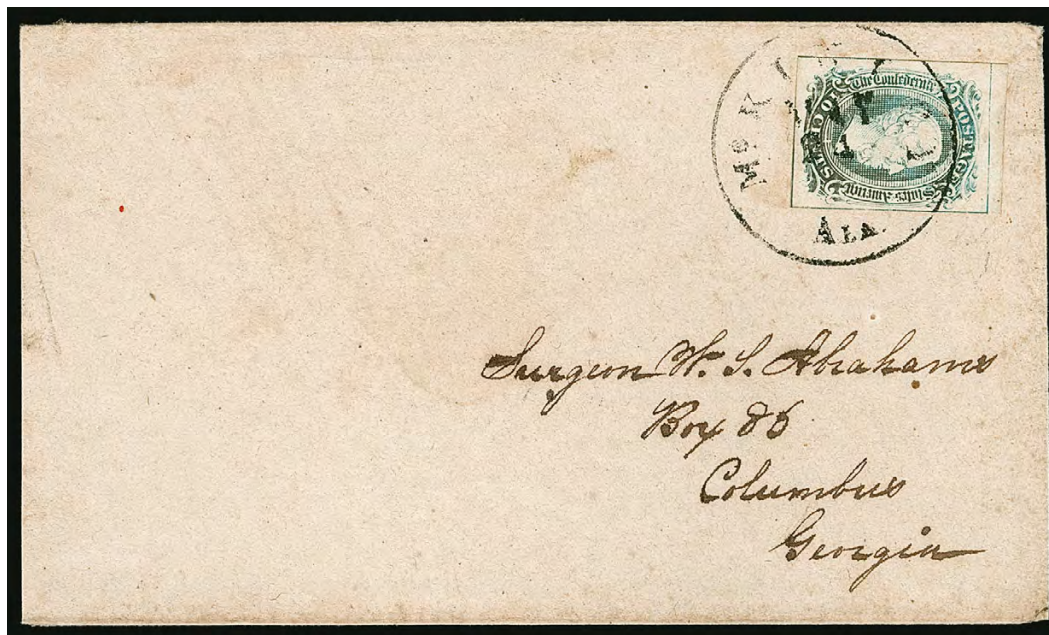 POSTAGE
The Confederate
States of America
CENTS
Ala.
Surgeon W. S. Abrahams
Box 86
Columbus
Georgia